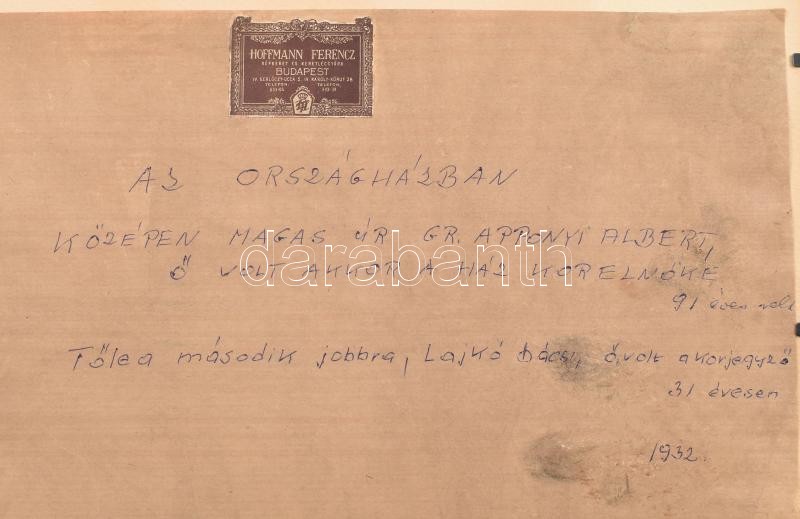 HOFFMANN FERENCZ
KÉPKERET ÉS KERETLÉCGYÁRA
BUDAPEST
IV. GERLÓCZY-UCCA 5. IV. KÁROLY-KÖRUT 28.
TELEFON. TELEFON.
AZ ORSZÁGHÁZBAN
KÖZÉPEN MAGAS ÚR GR. APPONYI ALBERT,
Ő VOLT AKKOR A HÁZ KORELNÖKE
91 éves volt
Tőle a második jobbra, Lajkó bácsi, ő volt a korjegyző
31 évesen
1932.
darabanth